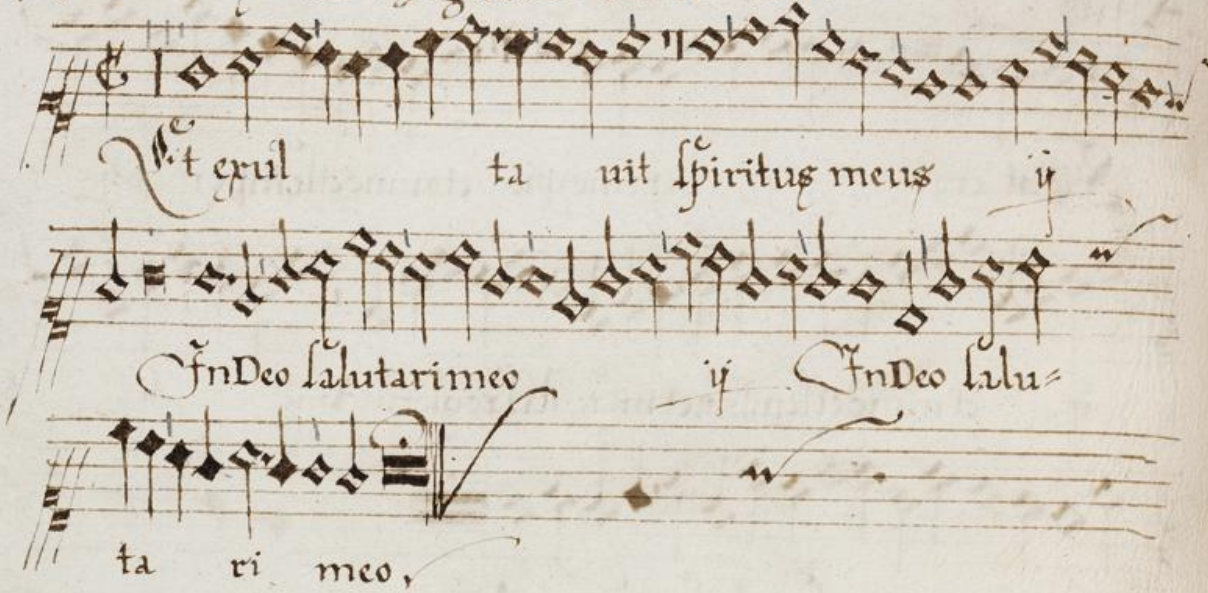 Et exul ta uit spiritus meus ij
In Deo salutari meo ij In Deo salu=
ta ri meo,